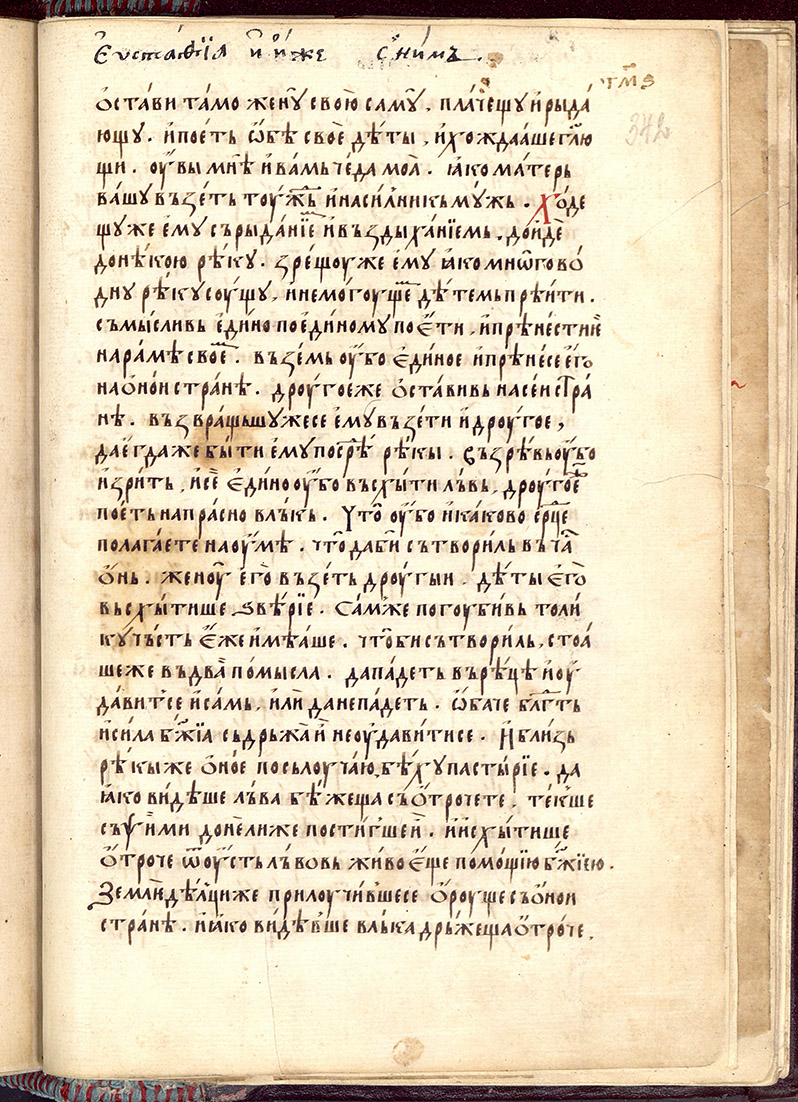 Еѵстаѳїа и҆ и҆́же с ни́мъ.
тм҃ѕ
342
ѡ҆ста́ви та́мо женꙋ̀ свою̀ са́мꙋ, пла́чещꙋ и҆ рыда́
ющꙋ. и҆ пое́ть ѻ҆бѣ̀ своѐ дѣ́ты, и҆ хожда́аше гл҃ю
щи. ᲂу҆вы̀ мнѣ̀ и҆ ва́мь че́да моа̀. ꙗ҆́ко ма́терь
ва́шу въ зе́ть тоу́жⷣь и҆ наси́лникь мꙋ́жь. Хо́де
щꙋ же є҆мꙋ̀ съ рыда́нїе и҆ въздыха́нїемь, до́йде
до нѣ́кою рѣ́кꙋ. зре́щоу же є҆мꙋ̀ ꙗ҆́ко мнѡ́гово́
днꙋ рѣ́кꙋ соу́щꙋ, и҆ не мо́гоущꙋ дѣ́темь прѣи́ти.
съмы́сливь є҆ди́но по є҆ди́номꙋ поѥ́ти, и҆ прѣне́сти иⷯ
на ра́мѣ своеⷨ. въземь ᲂу҆́бо є҆ди́ное и҆ прѣнесе є҆го̀
на ѻ҆но́и стра́нѣ. дроу́гое же ѡ҆ста́вивь на се́и стра́
нѣ. възвра́щьшꙋжесе є҆мꙋ̀ възе́ти и҆ дроу́гое,
да є҆гда́ же бы́ти є҆мꙋ̀ посрⷣѣ́ рѣ́кы. възрѣ́вь ᲂу҆́бо
и҆ зри́ть, и҆ сѐ є҆ди́но ᲂу҆́бо въсхы́ти ль́вь, дроу́гое
пое́ть напра́сно влькь. Что̀ ᲂу҆́бо и҆ како́во срⷣце
полага́ете на ᲂу҆́мѣ. что̀ да бѝ сътвори́ль въ чаⷭ҇
ѻ҆нь. женоу̀ є҆го̀ възе́ть дроу́гыи. дѣ́ты є҆го̀
въсхы́тише ѕвѣ́рїе. Са́мже погоуби́вь толи́
кꙋ чь́сть є҆́же и҆мѣ́аше. что̀ би сътвори́ль, стоа́
ше же въ два̀ по́мысла. да па́деть въ рѣ́цѣ и҆ ᲂу҆
да́витсе и҆ са́мь, и҆лѝ да не па́деть. ѻ҆ба́че блгⷣть
и҆ си́ла бж҃їа съдрьжа̀ и҆̀ не ᲂу҆да́витисе. И҆ бли́зь
рѣ́кы же ѻ҆́ное по сълоуча́ю бѣ́хꙋ пасты́рїе. да
ꙗ҆́ко ви́дѣше ль́ва бѣ́жеща съ ѻ҆́трочете, те́кше
съ ѱи́ми до́нелиже пости́гше и҆̀. и҆ и҆схы́тише
ѻ҆́троче ѿ ᲂу҆́сть ль́вовь жи́во є҆́ще по́мощїю бж҃їею.
Землѥдѣ́лци же прилоучи́вшесе ѻ҆́роуще съ ѻ҆но́и
стра́нѣ. и҆ ꙗ҆́ко ви́дѣвше влька дрь́жеща ѻ҆́троче,